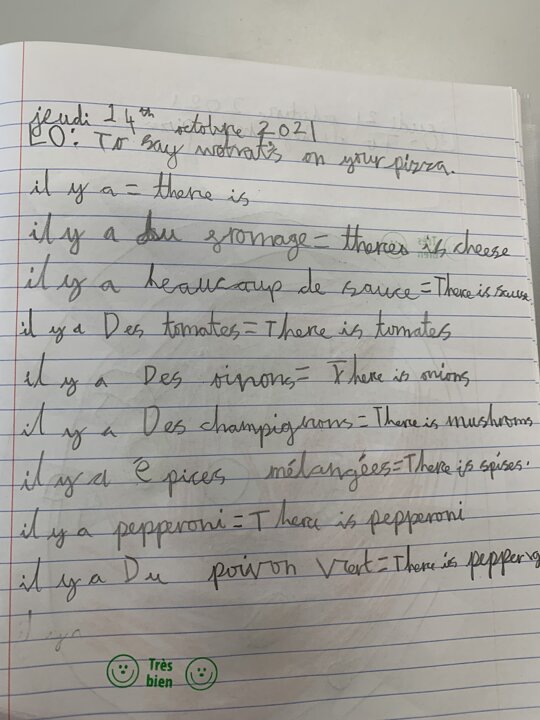 jeudi 14th octobre 2021
LO: To say what's on your pizza.
il y a = there is
il y a du fromage = there is cheese
il y a beaucoup de sauce = There is sause
il y a Des tomates = There is tomates
il y a Des oinons = There is onions
il y a Des champignons = There is mushroms
il y a épices mélangées = There is spises.
il y a pepperoni = There is pepperoni
il y a Du poivon vert = There is pepper
il y a
Très
bien